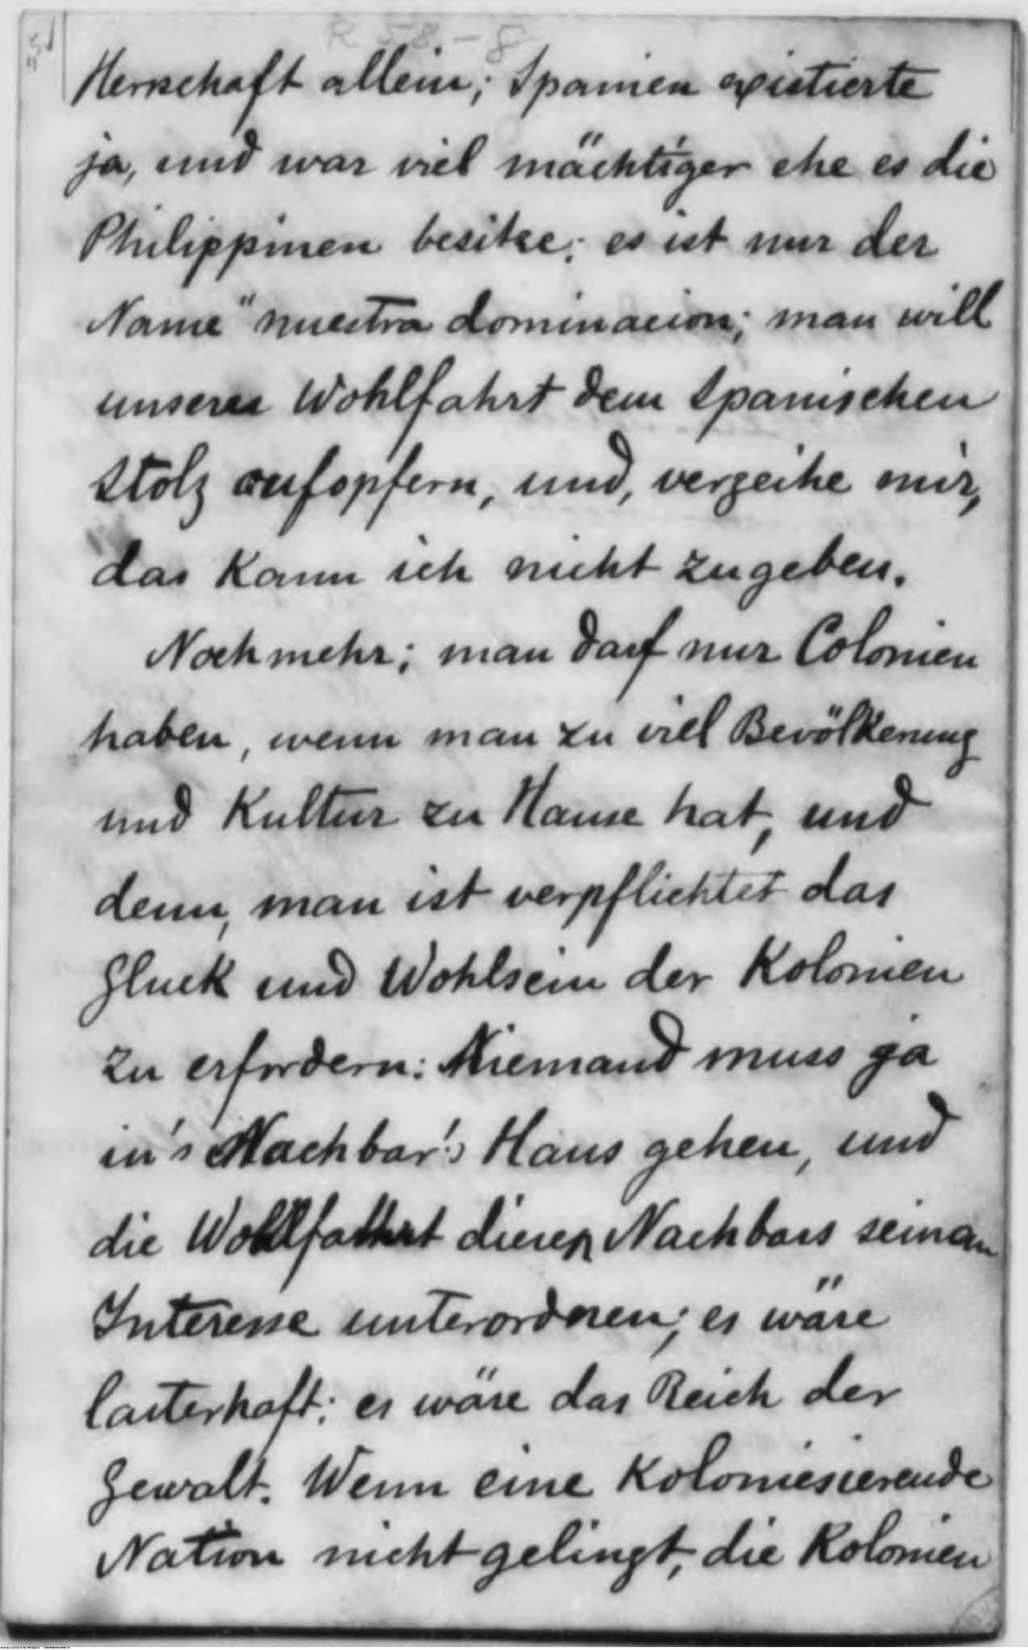 R 58-8
Herrschaft allein; Spanien existierte
ja, und war viel mächtiger ehe es die
Philippinen besitze; es ist nur der
Name "nuestra dominacion; man will
unseres Wohlfahrt dem Spanischen
Stolz aufopfern, und, verzeihe mir,
das kann ich nicht zugeben.
Noch mehr; man darf nur Colonien
haben, wenn man zu viel Bevölkerung
und Kultur zu Hause hat, und
denn, man ist verpflichtet das
Gluck und Wohlsein der Kolonien
zu erfordern: Niemand muss ja
in's Nachbar's Haus gehen, und
die Wohlfahrt dieses Nachbars seinem
Interesse unterordnen; es wäre
lasterhaft: es wäre das Reich der
Gewalt. Wenn eine Koloniesierende
Nation nicht gelingt, die Kolonien